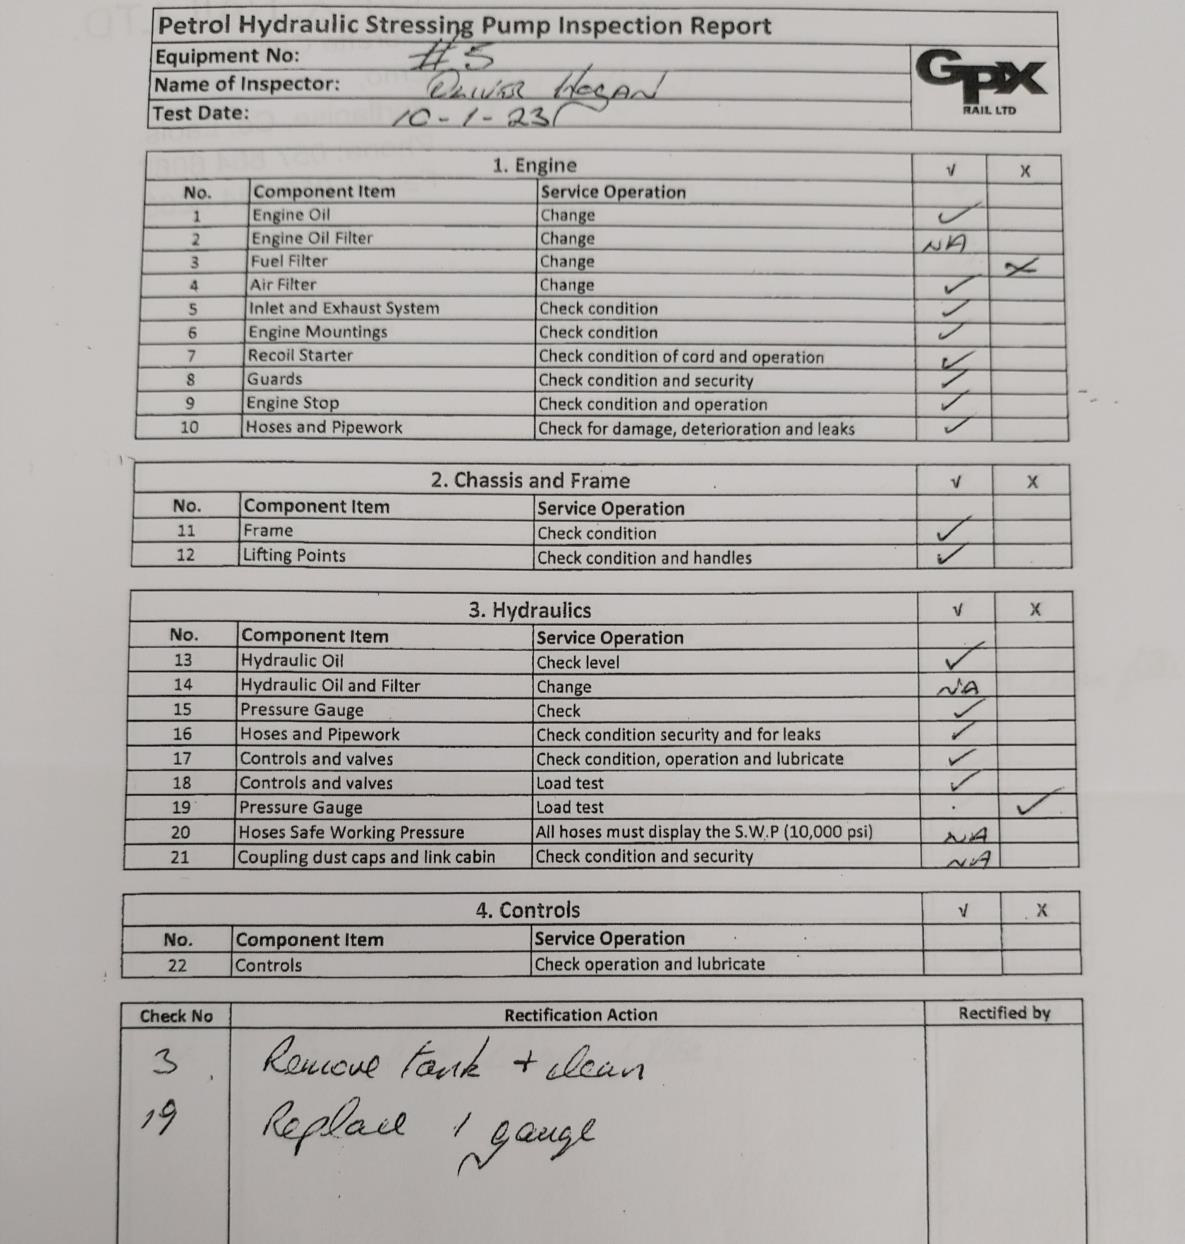 Petrol Hydraulic Stressing Pump Inspection Report
Equipment No: #5
Name of Inspector: OLIVER HOGAN
Test Date: 10-1-23
GPX
RAIL LTD
1. Engine √ X
No. Component Item Service Operation
1 Engine Oil Change ✓
2 Engine Oil Filter Change NA
3 Fuel Filter Change X
4 Air Filter Change ✓
5 Inlet and Exhaust System Check condition ✓
6 Engine Mountings Check condition ✓
7 Recoil Starter Check condition of cord and operation ✓
8 Guards Check condition and security ✓
9 Engine Stop Check condition and operation ✓
10 Hoses and Pipework Check for damage, deterioration and leaks ✓
2. Chassis and Frame √ X
No. Component Item Service Operation
11 Frame Check condition ✓
12 Lifting Points Check condition and handles ✓
3. Hydraulics √ X
No. Component Item Service Operation
13 Hydraulic Oil Check level ✓
14 Hydraulic Oil and Filter Change NA
15 Pressure Gauge Check ✓
16 Hoses and Pipework Check condition security and for leaks ✓
17 Controls and valves Check condition, operation and lubricate ✓
18 Controls and valves Load test ✓
19 Pressure Gauge Load test ✓
20 Hoses Safe Working Pressure All hoses must display the S.W.P (10,000 psi) NA
21 Coupling dust caps and link cabin Check condition and security NA
4. Controls √ X
No. Component Item Service Operation
22 Controls Check operation and lubricate
Check No Rectification Action Rectified by
3 Remove tank + clean
19 Replace 1 gauge